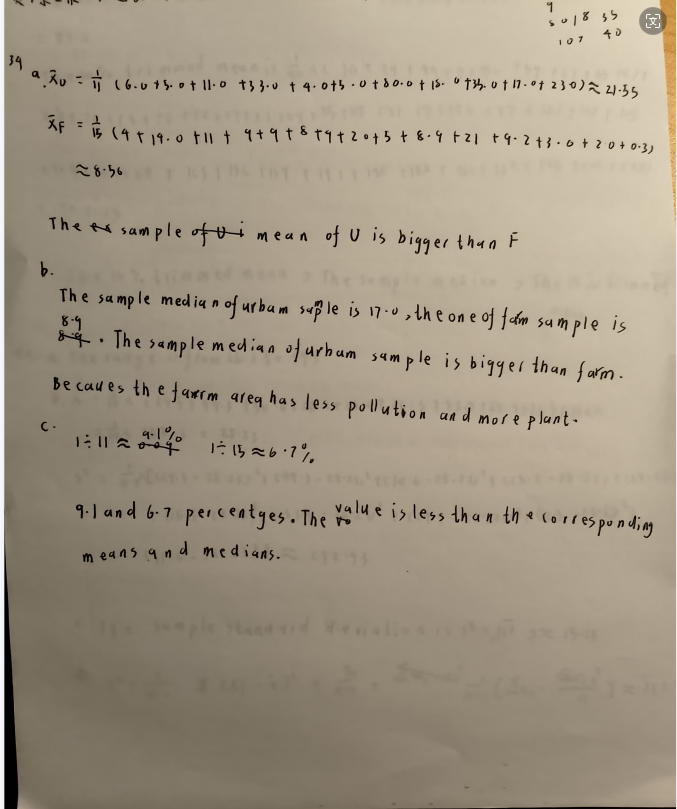 9
5 0 1 8 35
107 40
34
a. x̄U = 1/11 (6.0+5.0+11.0+33.0+4.0+5.0+80.0+18.0+35.0+17.0+23.0) ≈ 21.55
x̄F = 1/15 (4+14.0+11+9+9+8+4+20+5+8.9+21+9.2+3.0+2.0+0.3)
≈ 8.56
The sample mean of U is bigger than F
b.
The sample median of urbam sample is 17.0, the one of farm sample is
8.9
. The sample median of urbam sample is bigger than farm.
Becaues the farm area has less pollution and more plant.
c.
1÷11 ≈ 9.1% 1÷15 ≈ 6.7%
9.1 and 6.7 percentges. The value is less than the corresponding
means and medians.